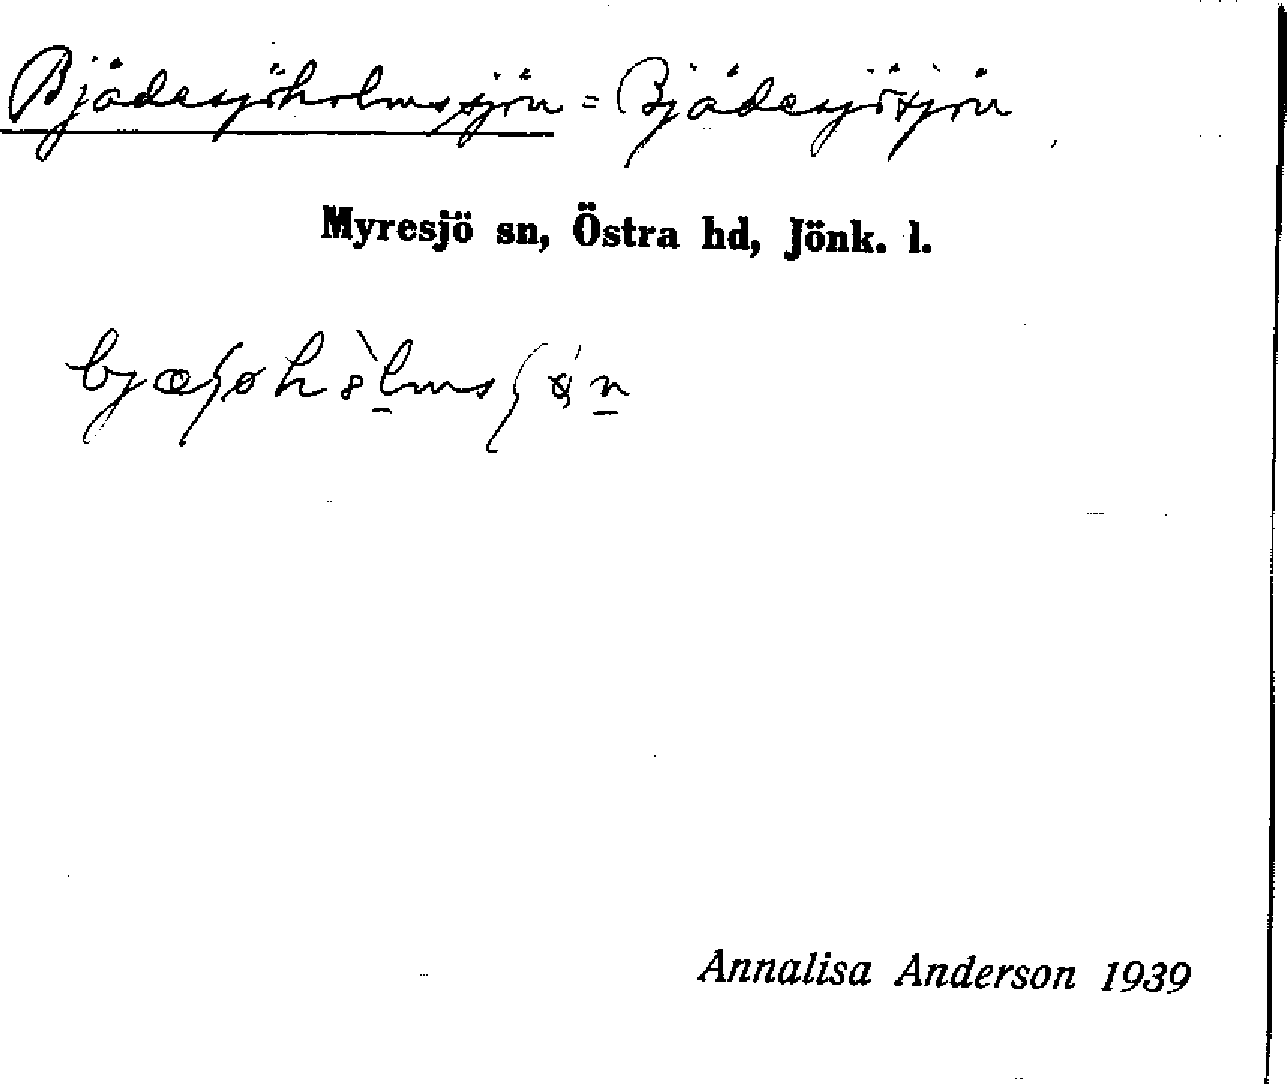 Bjädesjöholmssjön = Bjädesjösjön
Myresjö sn, Östra hd, Jönk. l.
Annalisa Anderson 1939